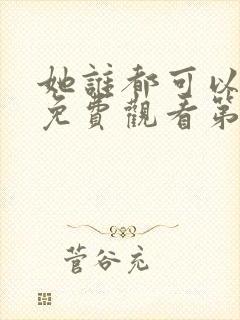 她誰都可以
免費觀看第
菅谷充